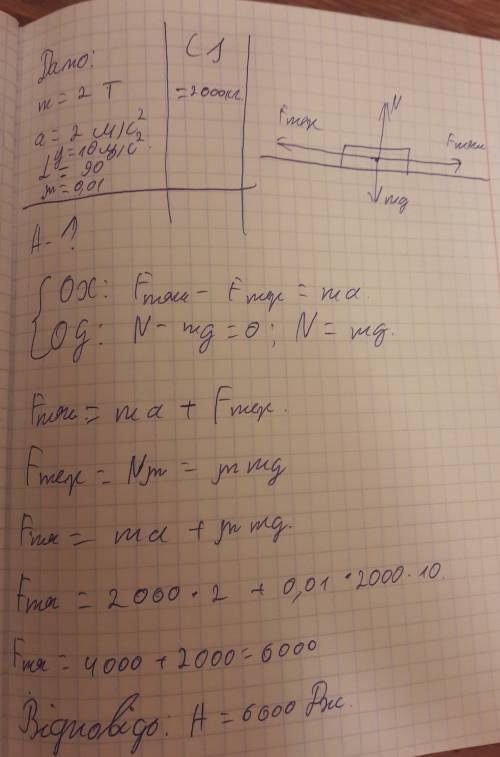 Дано:
СІ
m = 2 Т
= 2000кг.
a = 2 м/с²
g = 10 м/с²
L = 90
m = 0,01
A - ?
N
Fтер
Fтяги
mg
OX: Fтяги - Fтер = ma.
Oy: N - mg = 0; N = mg.
Fтяги = ma + Fтер.
Fтер = Nμ = μmg
Fтяг = ma + μmg.
Fтяг = 2000 · 2 + 0,01 · 2000 · 10.
Fтяг = 4000 + 2000 = 6000
Відповідь: A = 6000 Дж.